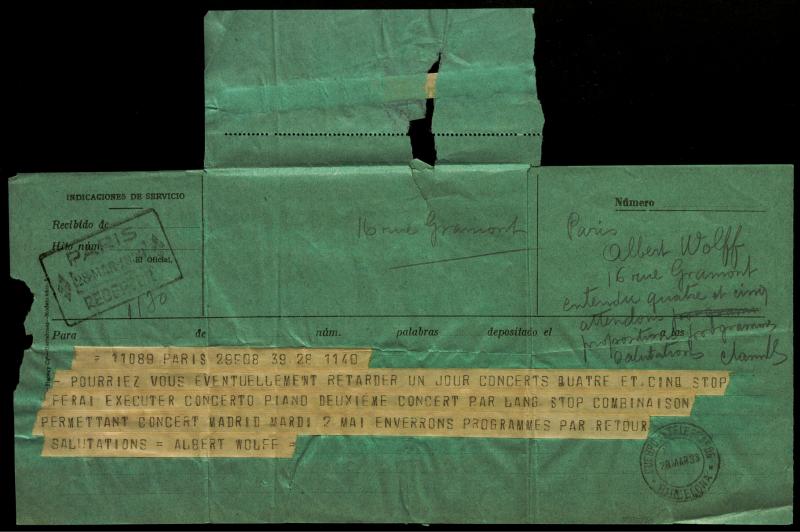 INDICACIONES DE SERVICIO
Recibido de
Hilo núm.
El Oficial,
PARIS
28 MAR
1130
16 rue Gramont
Número
Paris
Albert Wolff
16 rue Gramont
entendu quatre et cinq
attendons
propositions programmes
Salutations
Para de núm. palabras depositado el a las
= 11089 PARIS 29608 39 28 1140
- POURRIEZ VOUS EVENTUELLEMENT RETARDER UN JOUR CONCERTS QUATRE ET CINQ STOP
FERAI EXECUTER CONCERTO PIANO DEUXIEME CONCERT PAR LANG STOP COMBINAISON
PERMETTANT CONCERT MADRID MARDI 2 MAI ENVERRONS PROGRAMMES PAR RETOUR
SALUTATIONS = ALBERT WOLFF =
28 MAR 33
BARCELONA